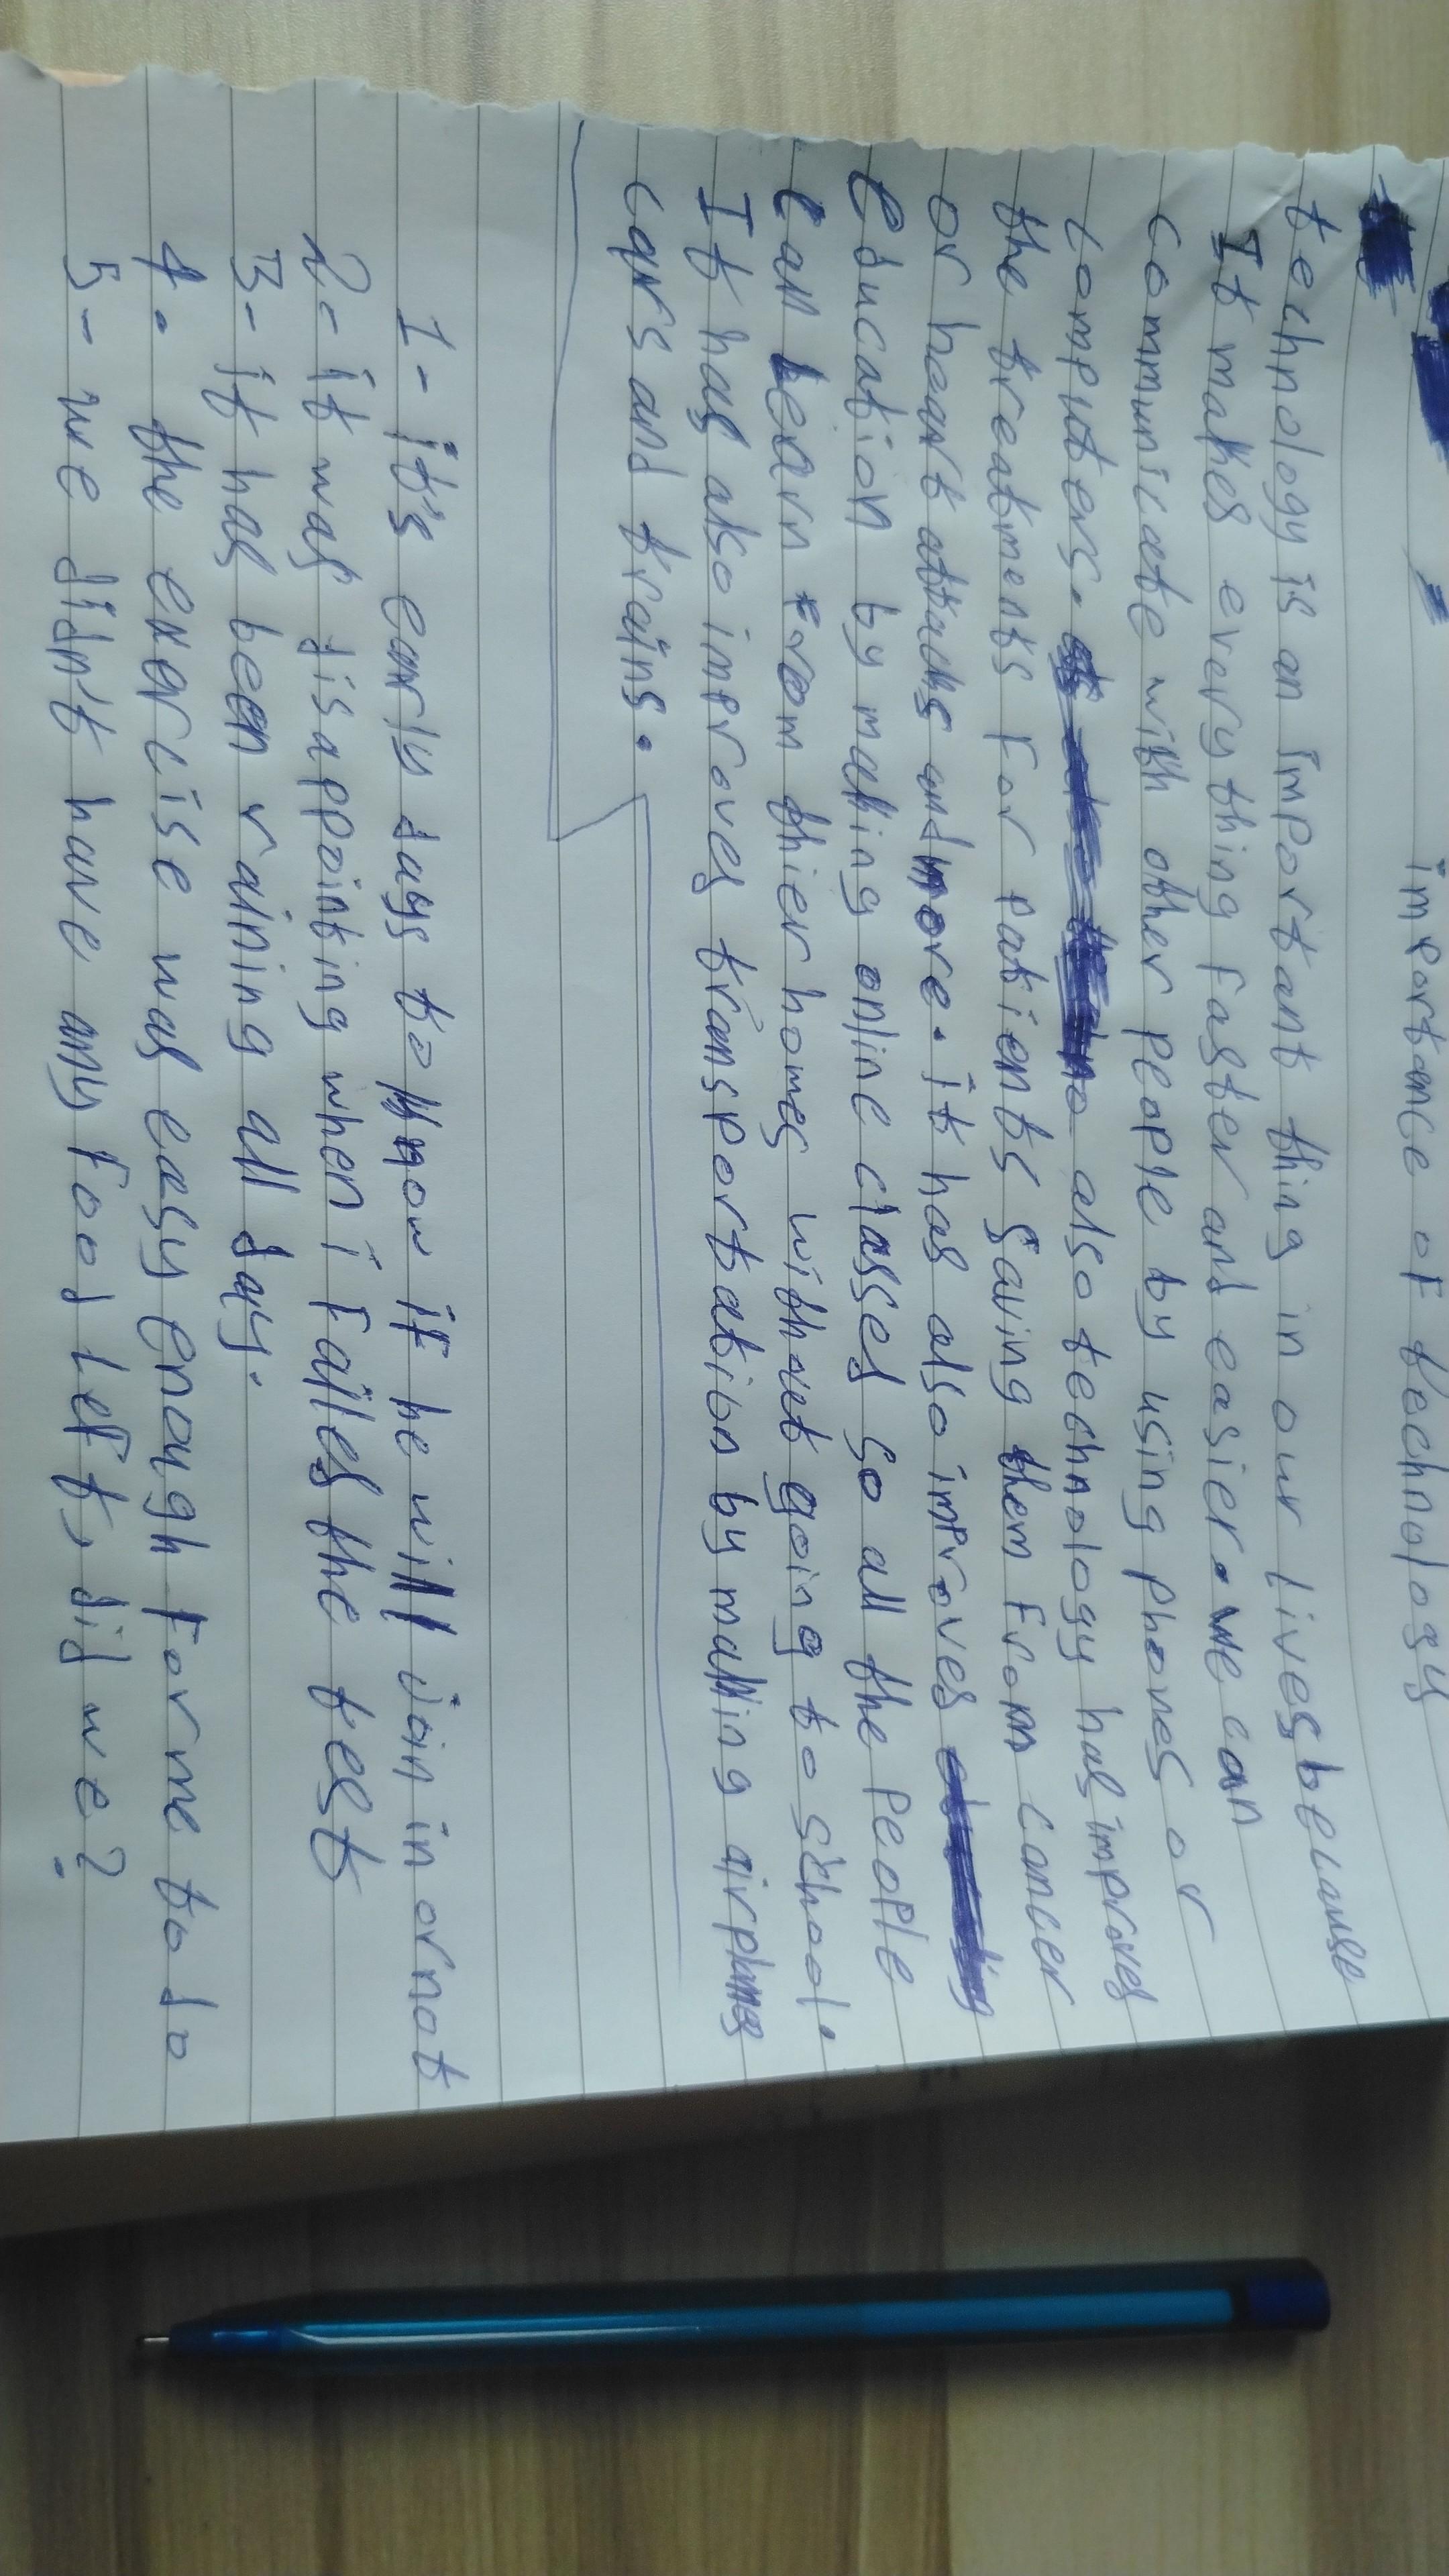 importance of technology
technology is an important thing in our lives because
It makes everything faster and easier. we can
communicate with other people by using phones or
computers. also technology has improves
the treatments for patients saving them from cancer
or heart attacks and more. it has also improves
education by making online classes so all the people
can learn from thier homes without going to school.
It has also improves transportation by making airplanes
cars and trains.
1- it's early days to know if he will join in or not
2- it was disappointing when i failes the test
3- it has been raining all day.
4. the exercise was easy enough for me to do
5- we didn't have any food left, did we?